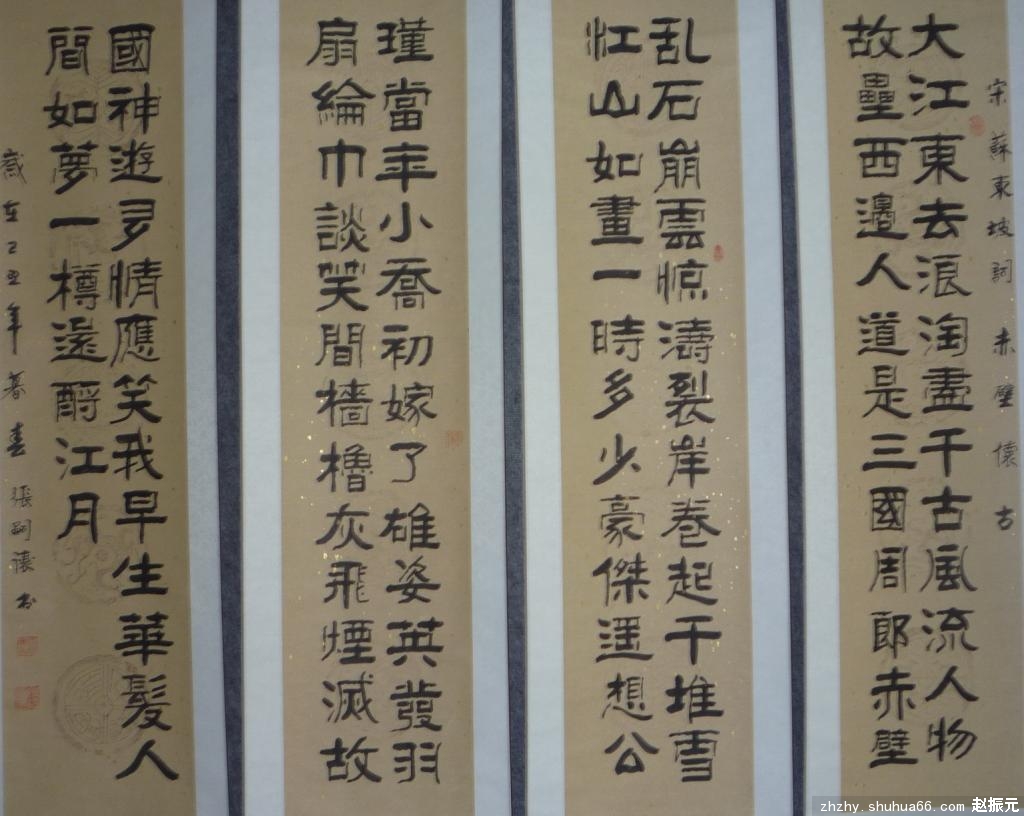 宋蘇東坡詞 赤壁懷古
大江東去浪淘盡千古風流人物
故壘西邊人道是三國周郎赤壁
乱石崩雲惊濤裂岸卷起千堆雪
江山如畫一時多少豪傑遥想公
瑾當年小喬初嫁了雄姿英發羽
扇綸巾談笑間檣櫓灰飛煙滅故
國神遊多情應笑我早生華髮人
間如夢一樽還酹江月
歲在己丑年暮春 張嗣 书
zhzhy.shuhua66.com 赵振元